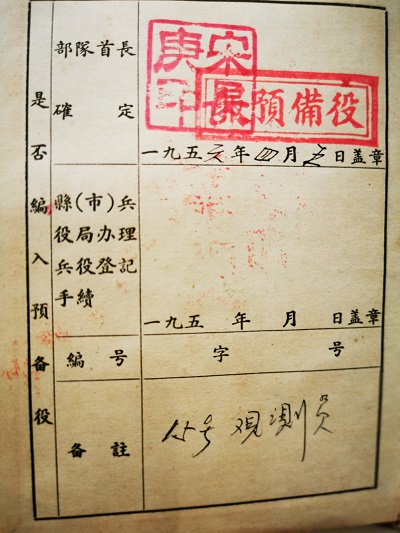 是否編入預備役
部隊首長
確定
宋
庚印
預備役
一九五六年四月五日盖章
縣(市)兵
役局办理
兵役登記
手續
一九五 年 月 日盖章
編号 字 号
備註
观測员